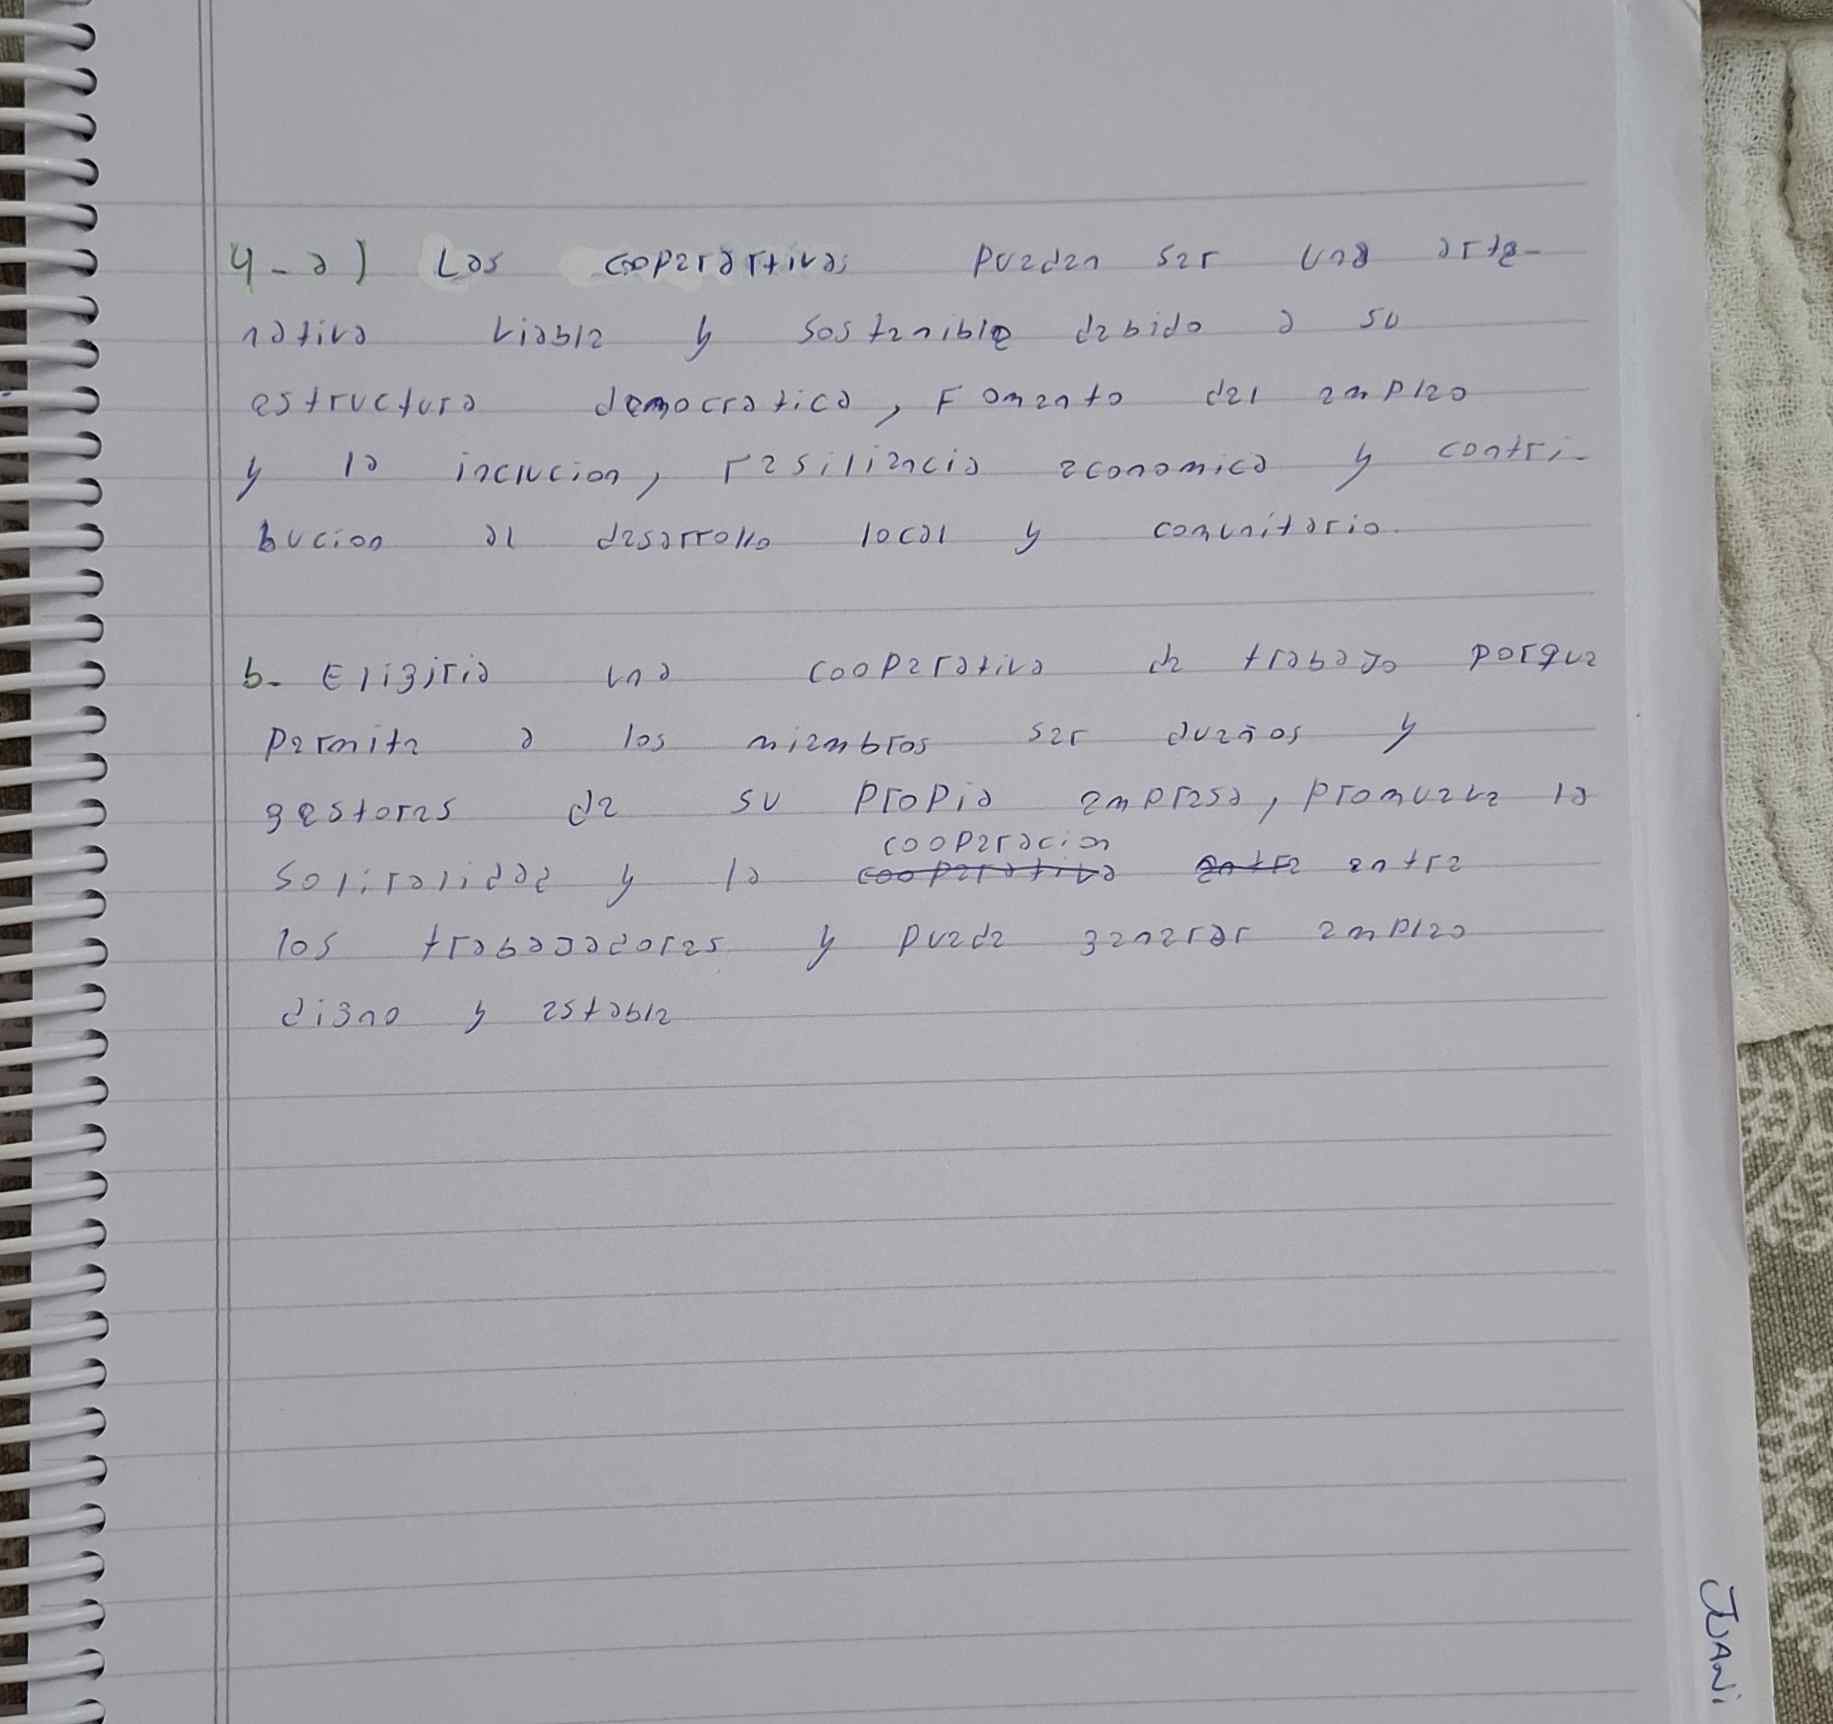 4-a) Las coperartivas pueden ser una arte-
nativa viable y sostenible debido a su
estructura democratica, Fomento del empleo
y la inclucion, resiliencia economica y contri-
bucion al desarrollo local y comunitario.
b- Eligiria una cooperativa de trabajo porque
permite a los miembros ser dueños y
gestores de su propia empresa, promueve la
cooperacion
soliralidad y la cooperativa entre entre
los trabajadores y puede generar empleo
digno y estable
JUANi